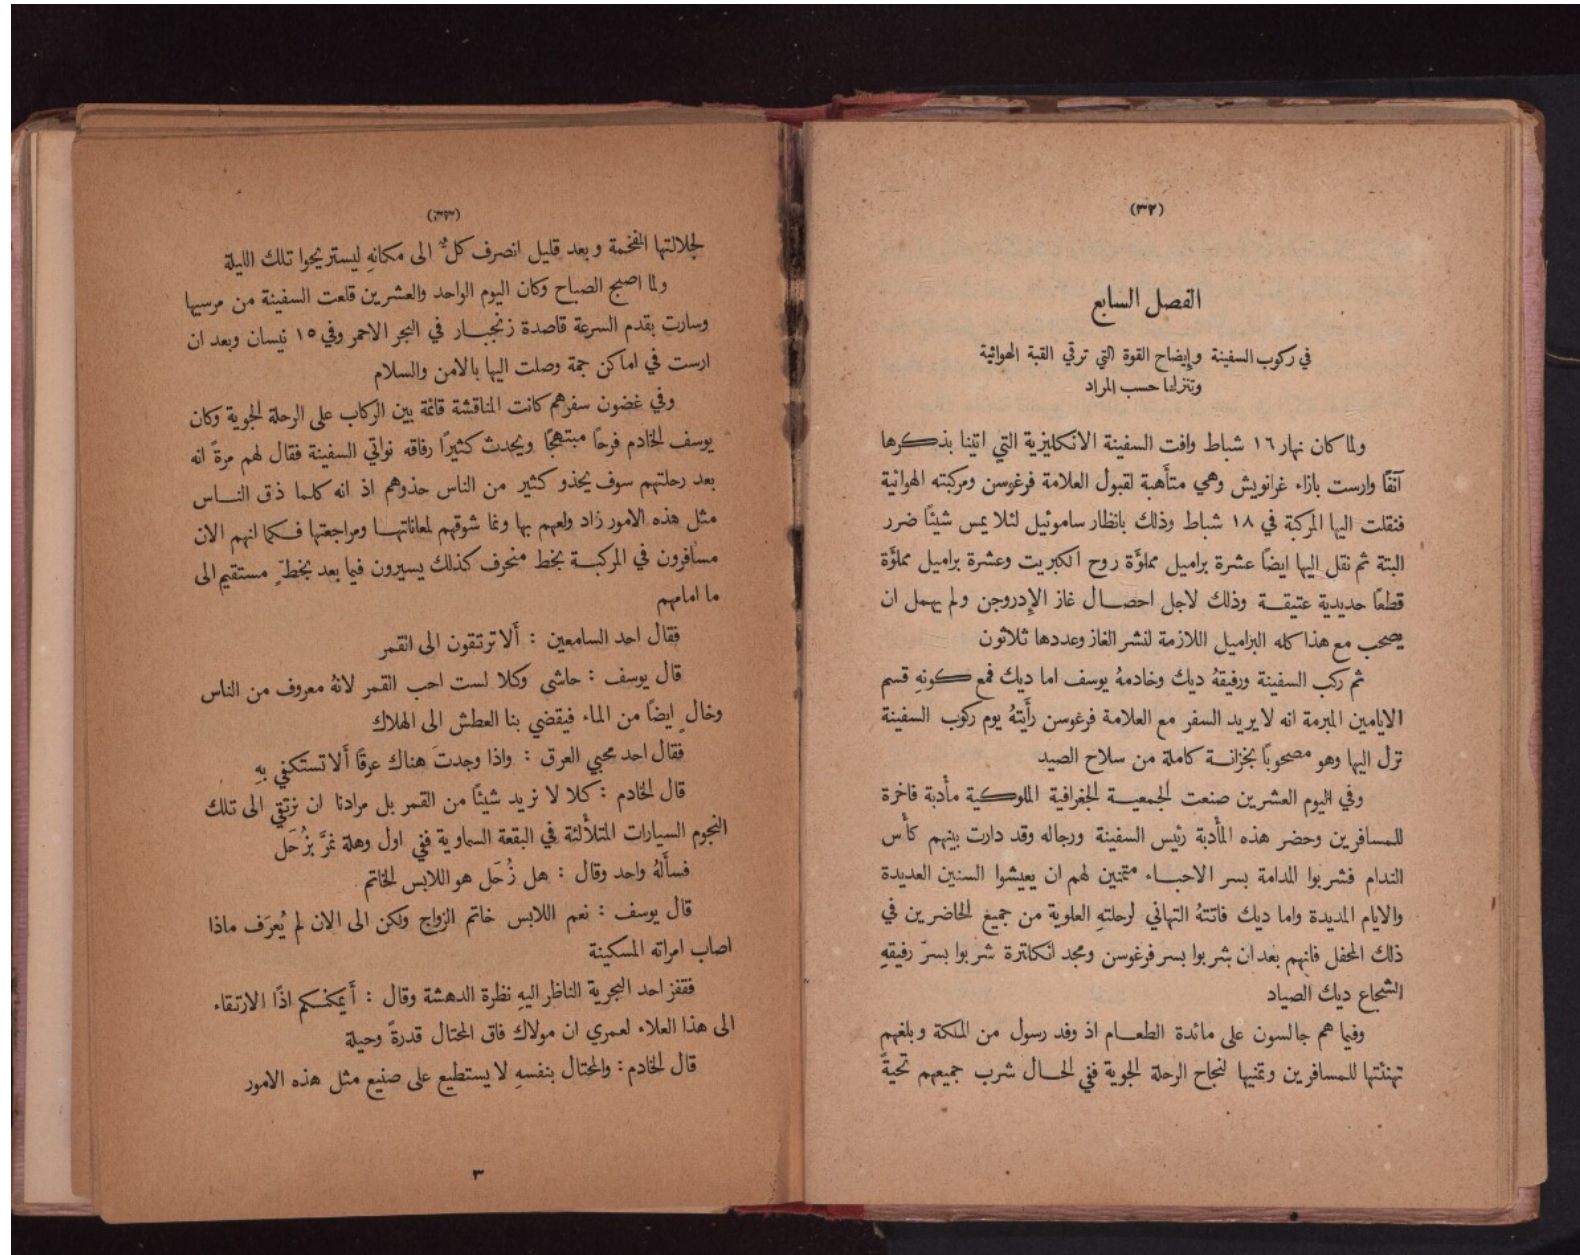 (٣٢)
الفصل السابع
في ركوب السفينة وإيضاح القوة التي ترقي القبة الهوائية
وتنزلها حسب المراد
ولما كان نهار ١٦ شباط وافت السفينة الانكليزية التي اتينا بذكرها
آنفًا وارست بازاء غرانويش وهي متأهبة لقبول العلامة فرغوسن ومركبته الهوائية
فنقلت اليها المركبة في ١٨ شباط وذلك بانظار ساموئيل لئلا يمس شيئًا ضرر
البتة ثم نقل اليها ايضًا عشرة براميل مملؤَة روح الكبريت وعشرة براميل مملؤَة
قطعًا حديدية عتيقة وذلك لاجل احصال غاز الإدروجن ولم يهمل ان
يصحب مع هذا كله البراميل اللازمة لنشر الغاز وعددها ثلاثون
ثم ركب السفينة ورفيقهُ ديك وخادمهُ يوسف اما ديك فمع كونهِ قسم
الايامين المبرمة انه لا يريد السفر مع العلامة فرغوسن رأَيتهُ يوم ركوب السفينة
نزل اليها وهو مصحوبًا بخزانة كاملة من سلاح الصيد
وفي اليوم العشرين صنعت الجمعية الجغرافية الملوكية مأدبة فاخرة
للمسافرين وحضر هذه المأدبة رئيس السفينة ورجاله وقد دارت بينهم كأس
الندام فشربوا المدامة بسر الاحباء متمنين لهم ان يعيشوا السنين العديدة
والايام المديدة واما ديك فاتتهُ التهاني لرحلتهِ العلوية من جميع الحاضرين في
ذلك المحفل فانهم بعد ان شربوا بسر فرغوسن ومجد انكلترة شربوا بسرّ رفيقهِ
الشجاع ديك الصياد
وفيما هم جالسون على مائدة الطعام اذ وفد رسول من الملكة وبلغهم
تهنئتها للمسافرين وتمنيها لنجاح الرحلة الجوية ففي الحال شرب جميعهم تحيةً
(٣٣)
لجلالتها المفخمة وبعد قليل انصرف كلٌّ الى مكانهِ ليستريحوا تلك الليلة
ولما اصبح الصباح وكان اليوم الواحد والعشرين قلعت السفينة من مرسيها
وسارت بقدم السرعة قاصدة زنجبار في البحر الاحمر وفي ١٥ نيسان وبعد ان
ارست في اماكن جمة وصلت اليها بالامن والسلام
وفي غضون سفرهم كانت المناقشة قائمة بين الركاب على الرحلة الجوية وكان
يوسف الخادم فرحًا مبتهجًا ويحدث كثيرًا رفاقه نواتي السفينة فقال لهم مرةً انه
بعد رحلتهم سوف يحذو كثير من الناس حذوهم اذ انه كلما ذق الناس
مثل هذه الامور زاد ولعهم بها ونما شوقهم لمعاناتها ومراجعتها فكما انهم الان
مسافرون في المركبة بخط منحرف كذلك يسيرون فيما بعد بخطٍّ مستقيم الى
ما امامهم
فقال احد السامعين : أَلا ترتقون الى القمر
قال يوسف : حاشى وكلا لست احب القمر لانهُ معروف من الناس
وخالٍ ايضًا من الماء فيقضي بنا العطش الى الهلاك
فقال احد محبي العرق : واذا وجدتَ هناك عرقًا أَلا تستكفي بهِ
قال الخادم : كلا لا نريد شيئًا من القمر بل مرادنا ان نرتقي الى تلك
النجوم السيارات المتلألئة في البقعة السماوية ففي اول وهلة نمرَّ بزُحَل
فسأَلهُ واحد وقال : هل زُحَل هو اللابس الخاتم
قال يوسف : نعم اللابس خاتم الزواج ولكن الى الان لم يُعرَف ماذا
اصاب امراته المسكينة
فقفز احد البحرية الناظر اليهِ نظرة الدهشة وقال : أَيمكنكم اذًا الارتقاء
الى هذا العلاء لعمري ان مولاك فاق المحتال قدرةً وحيلة
قال الخادم : والمحتال بنفسهِ لا يستطيع على صنيع مثل هذه الامور
٣